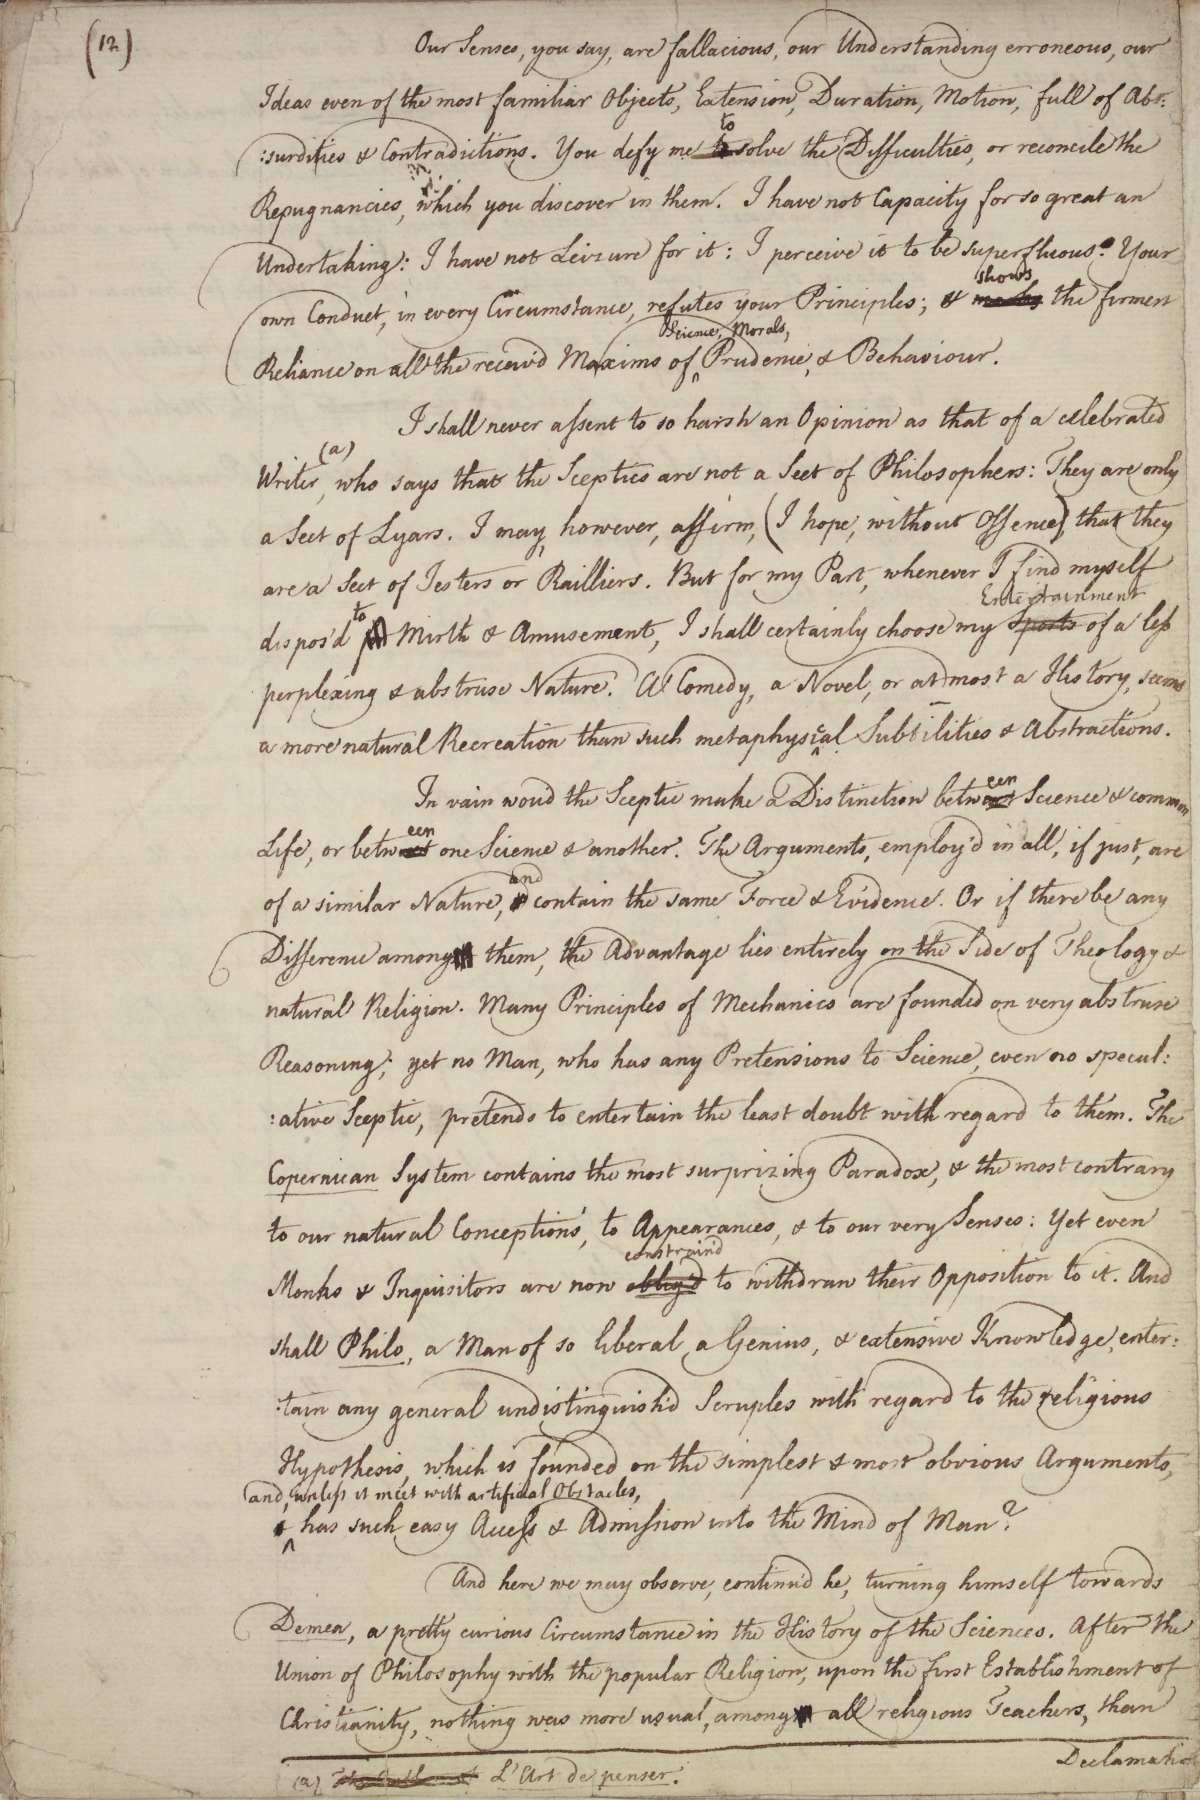 (12)
Our Senses, you say, are fallacious, our Understanding erroneous, our
Ideas even of the most familiar Objects, Extension, Duration, Motion, full of Abs:
:surdities & Contradictions. You defy me to solve the Difficulties, or reconcile the
Repugnancies, which you discover in them. I have not Capacity for so great an
Undertaking: I have not Leizure for it: I perceive it to be superfluous. Your
own Conduct, in every Circumstance, refutes your Principles; & shows the firmest
Reliance on all the receiv'd Maxims of Science, Morals, Prudence, & Behaviour.
I shall never assent to so harsh an Opinion as that of a celebrated
Writer (a), who says that the Sceptics are not a Sect of Philosophers: They are only
a Sect of Lyars. I may, however, affirm, (I hope, without Offence) that they
are a Sect of Jesters or Railliers. But for my Part, whenever I find myself
dispos'd to Mirth & Amusement, I shall certainly choose my Entertainment of a less
perplexing & abstruse Nature. A Comedy, a Novel, or at most a History, seems
a more natural Recreation than such metaphysical Subtilities & Abstractions.
In vain wou'd the Sceptic make a Distinction between Science & common
Life, or between one Science & another. The Arguments, employ'd in all, if just, are
of a similar Nature, and contain the same Force & Evidence. Or if there be any
Difference among them, the Advantage lies entirely on the Side of Theology &
natural Religion. Many Principles of Mechanics are founded on very abstruse
Reasoning; yet no Man, who has any Pretensions to Science, even no specul:
:ative Sceptic, pretends to entertain the least doubt with regard to them. The
Copernican System contains the most surprizing Paradox, & the most contrary
to our natural Conceptions, to Appearances, & to our very Senses: Yet even
Monks & Inquisitors are now constrain'd to withdraw their Opposition to it. And
shall Philo, a Man of so liberal a Genius, & extensive Knowledge, enter:
:tain any general undistinguish'd Scruples with regard to the religious
Hypothesis, which is founded on the simplest & most obvious Arguments,
and, unless it meet with artificial Obstacles,
has such easy Access & Admission into the Mind of Man?
And here we may observe, continu'd he, turning himself towards
Demea, a pretty curious Circumstance in the History of the Sciences. After the
Union of Philosophy with the popular Religion, upon the first Establishment of
Christianity, nothing was more usual, among all religious Teachers, than
Declamatio
(a) L'Art de penser.